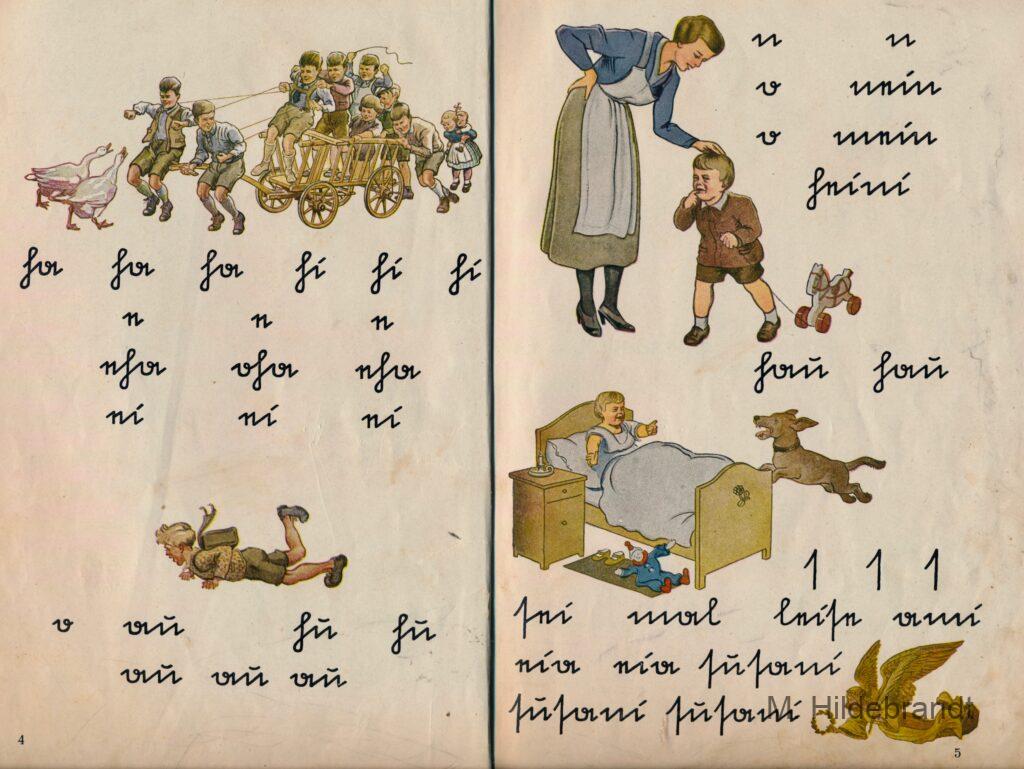 ha ha ha hi hi hi
e e e
eha oha eha
ei ei ei
o au hu hu
au au au
4
n n
o nein
o mein
heini
hau hau
ſ ſ ſ
ſei mal leiſe ami
eia eia ſuſani
ſuſani ſuſani
M. Hildebrandt
5